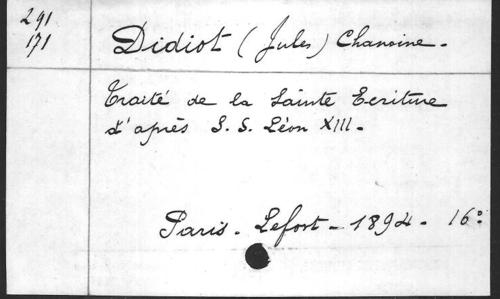 291
171
Didiot (Jules) Chanoine.
Traité de la Sainte Ecriture
d'après S. S. Léon XIII.
Paris. Lefort. 1894. 16°